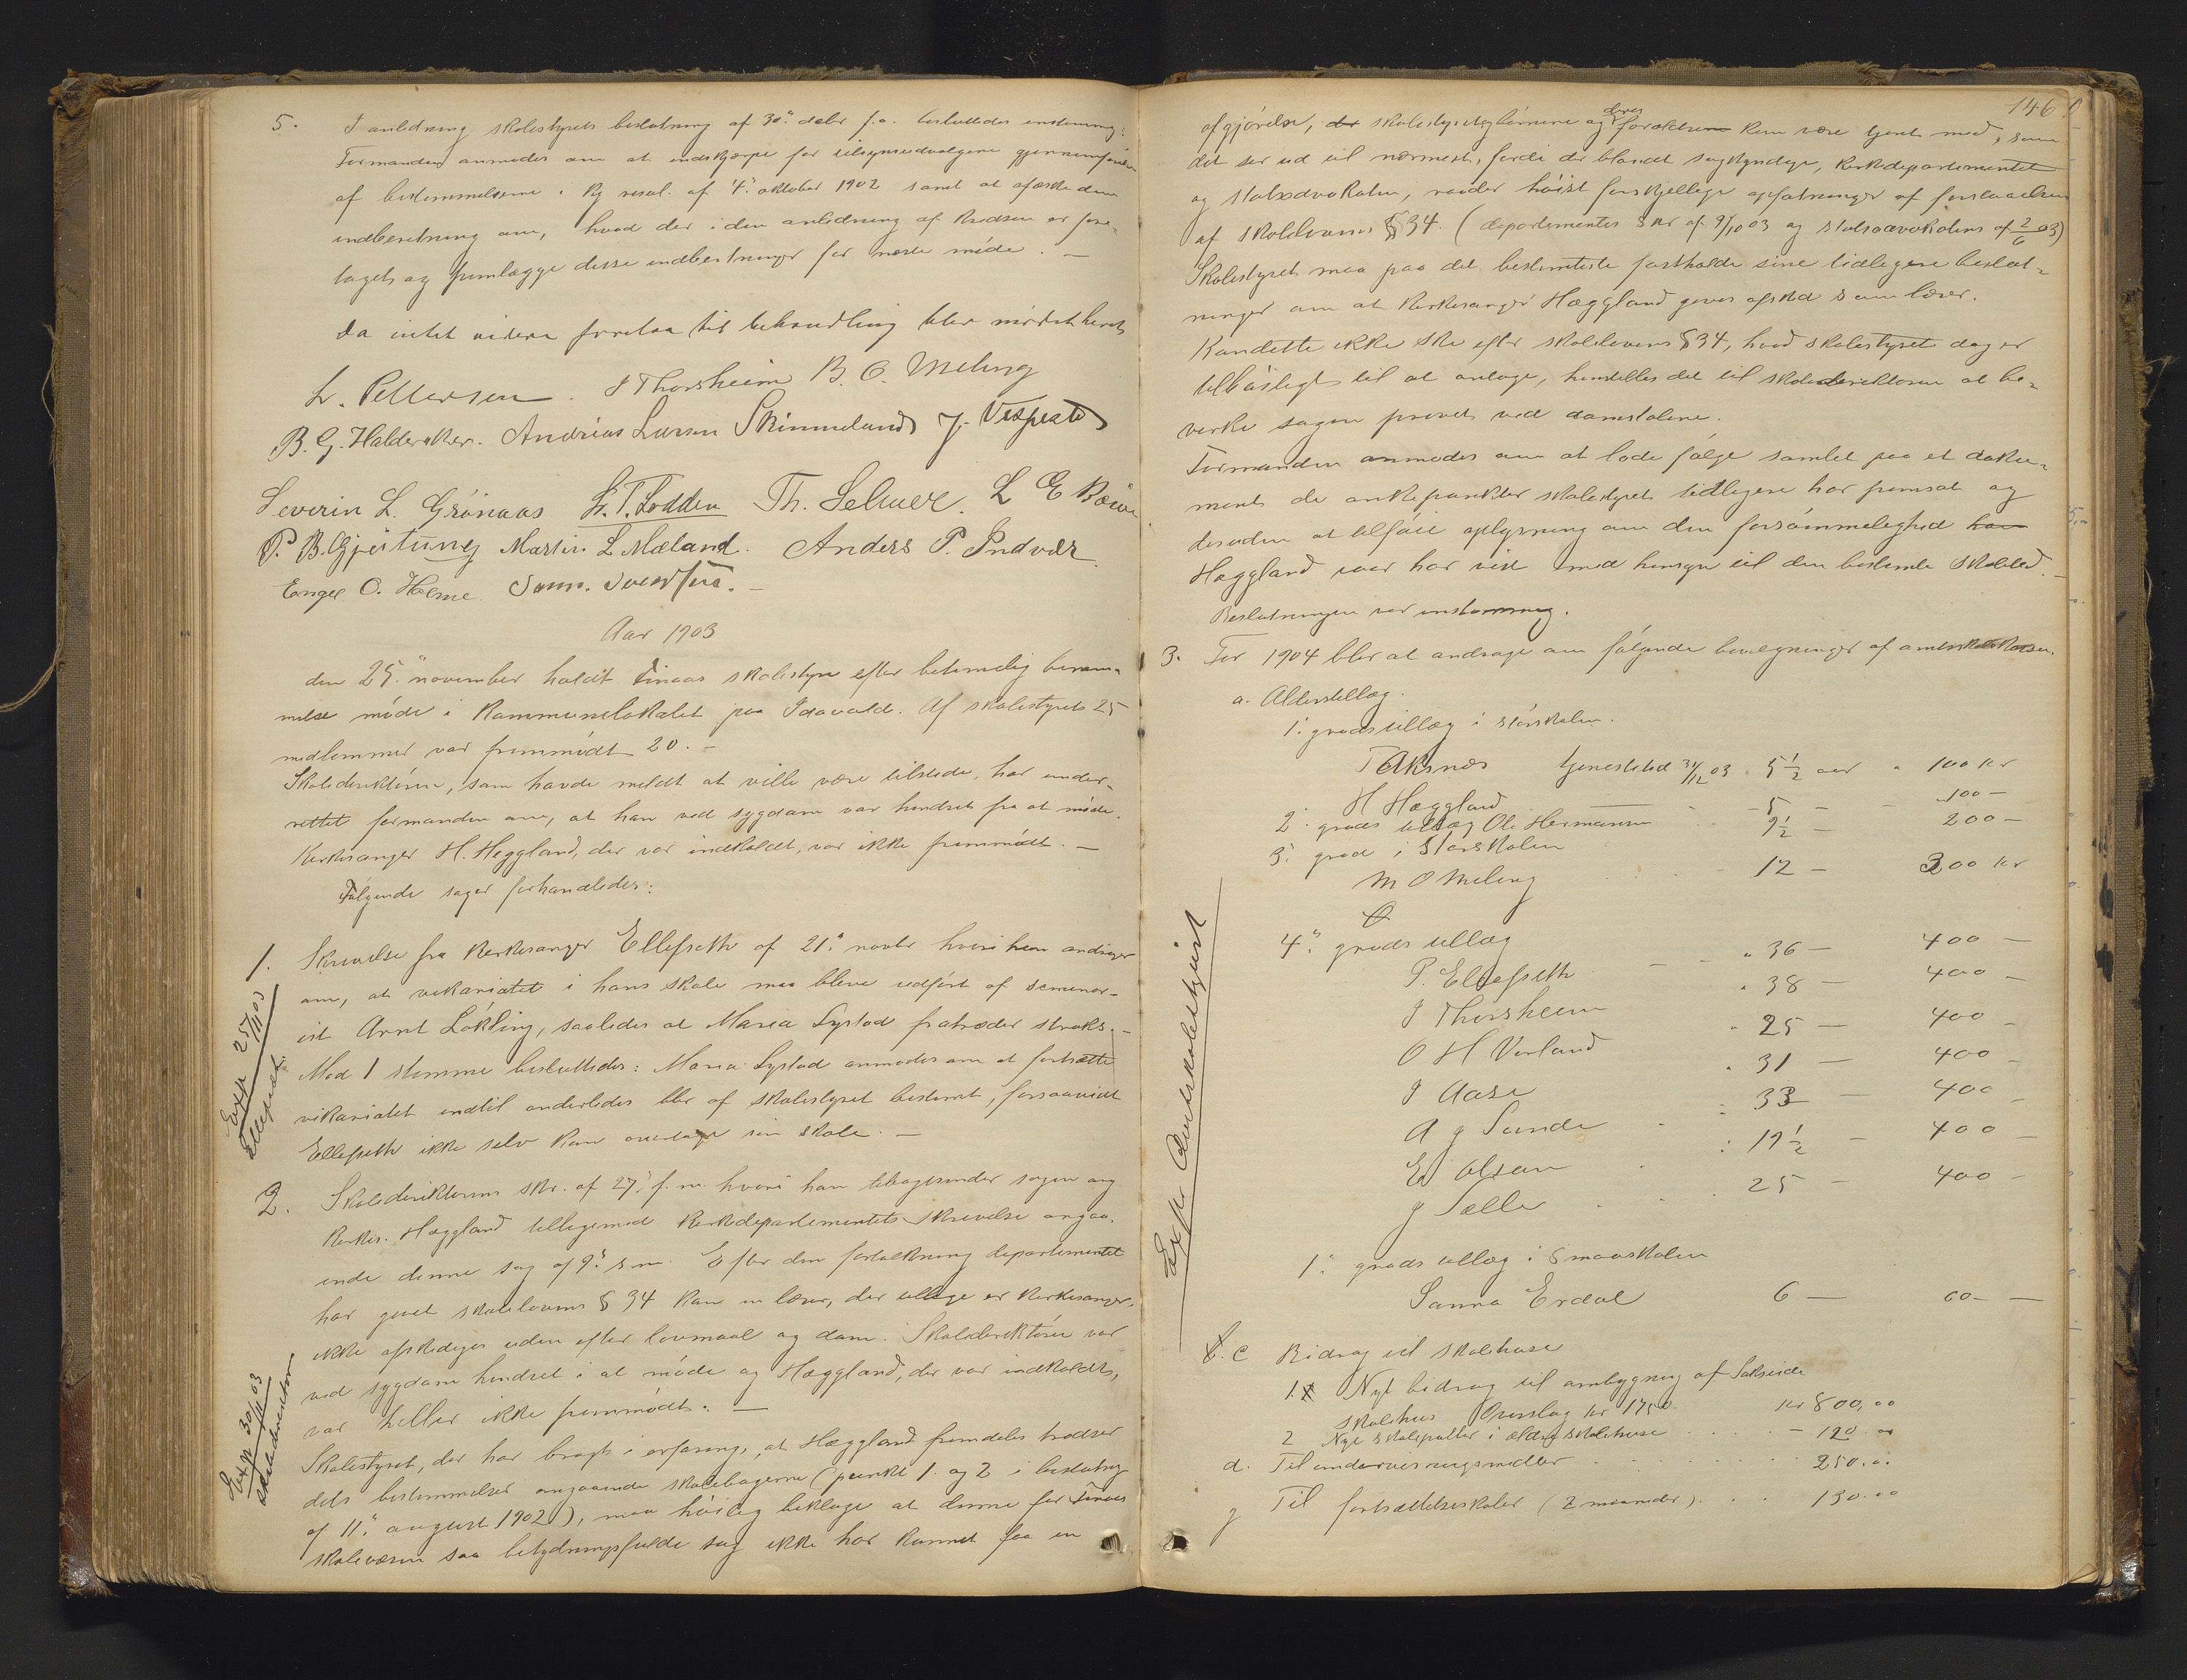 5. I anledning skolestyrets beslutning af 30. debr f.a. besluttedes enstemmig:
Formanden anmodes om at indskjærpe for tilsynsudvalgene gjennemførelsen
af bestemmelserne i kg resol. af 4. oktober 1902 samt at afæske dem
indberetning om, hvad der i den anledning af kredsen er fore-
taget og fremlægge disse indberetninger for næste møde. —
Da intet videre forelaa til behandling blev mødet hevet
L. Pettersen. J Thorsheim B. O. Meling
B. G. Halderaker. Andrias Larsen Skimmeland J. Vespestad
Severin L. Grönaas L. T. Lodden Th. Selmer. L E Bowe
P. B. Gjeitung Martin L Mæland. Anders P. Indvær
Enge O. Holme
Aar 1903
den 25. november holdt Finaas skolestyre efter betimelig beram-
melse møde i kommunelokalet paa Idavold. Af skolestyrets 25
medlemmer var fremmødt 20. —
Skoledirektøren, som havde meldt at ville være tilstede, har under-
rettet formanden om, at han ved sygdom var hindret fra at møde.
Kirkesanger H. Heggland, der var indkaldt, var ikke fremmødt. —
Følgende sager forhandledes:
1. Skrivelse fra kirkesanger Ellefseth af 21. novbr hvori han andrager
om, at vikariatet i hans skole maa bleve udført af seminar-
ist Arnt Løkling, saaledes at Maria Systad fratræder straks. —
Mod 1 stemme besluttedes: Maria Systad anmodes om at fortsætte
vikariatet indtil anderledes blir af skolestyret bestemt, forsaavidt
Ellefseth ikke selv kan overtage sin skole. —
Exp. 25/11 03
Ellefseth
2. Skoledirektørens skr. af 27. f. m. hvori han tilbagesender sagen ang
kirkes. Hæggland tilligemed kirkedepartementets skrivelse angaa-
ende denne sag af 9. s.m. Efter den fortolkning departementet
har givet skolelovens § 34 kan en lærer, der tillige er kirkesanger,
ikke afskediges uden efter lovmaal og dom. Skoledirektøren var
ved sygdom hindret i at møde og Hæggland, der var indkaldt,
var heller ikke fremmødt. —
Exp. 30/11 03
skoledirektøren
Skolestyret, der har bragt i erfaring, at Hæggland fremdeles trodser
dets bestemmelser angaaende skolebøgerne (punkt 1. og 2 i beslutng
af 11. august 1902), maa høilig beklage at denne for Finaas
skolevæsen saa betydningsfulde sag ikke har kunnet faa en
146
afgjørelse, skolestyret, børnene og deres forældre kan være tjent med, som
det ser ud til nærmest, fordi der blandt sagkyndige, kirkedepartementet
og statsadvokaten, raader høist forskjellige opfatninger af forstaaelsen
af skolelovens § 34. (departementes skr af 9/10 03 og statsadvokatens af 2/6 03)
Skolestyret maa paa det bestemteste fastholde sine tidligere beslut-
ninger om at kirkesanger Hæggland gives afsked som lærer.
Kan dette ikke ske efter skolelovens § 34, hvad skolestyret dog er
tilbøieligt til at antage, henstilles det til skoledirektøren at be-
virke sagen prøvet ved domstolene.
Formanden anmodes om at lade følge samlet paa et doku-
ment de ankepunkter skolestyret tidligere har fremsat og
desuden at tilføie oplysning om den forsømmelighed
Hæggland iaar har vist med hensyn til den bestemte skoletid. —
Beslutningen var enstemmig.
3. For 1904 blir at andrage om følgende bevilgninger af amtsskolekassen.
a. Alderstillæg.
1. grads tillæg i storskolen.
T Aksnes tjenestetid 31/12 03 5 1/2 aar 100 kr
H Hæggland 5 — 100 —
2. grads tillæg Ole Hermansen 9 1/2 — 200 —
3. grad i storskolen
M O Meling 12 — 300 kr
4. grads tillæg
P. Ellefseth 36 — 400 —
J Thorsheim 38 — 400 —
O H Vorland 25 — 400 —
J Aase 31 — 400 —
A g Sunde 33 — 400 —
E Olsen 19 1/2 — 400 —
J Sælle 25 — 400 —
1. grads tillæg i smaaskolen
Sanna Erdal 6 — 60 —
Exp. Amtsskolestyret
c Bidrag til skolehuse
1. Nyt bidrag til ombygning af Sakseide
skolehus Overslag kr 1750. kr 800,00
2 Nye skolepulter i ældre skolehuse — 120 00
d. Til undervisningsmidler 250.00
g Til fortsættelsesskoler (2 maaneder) 130.00